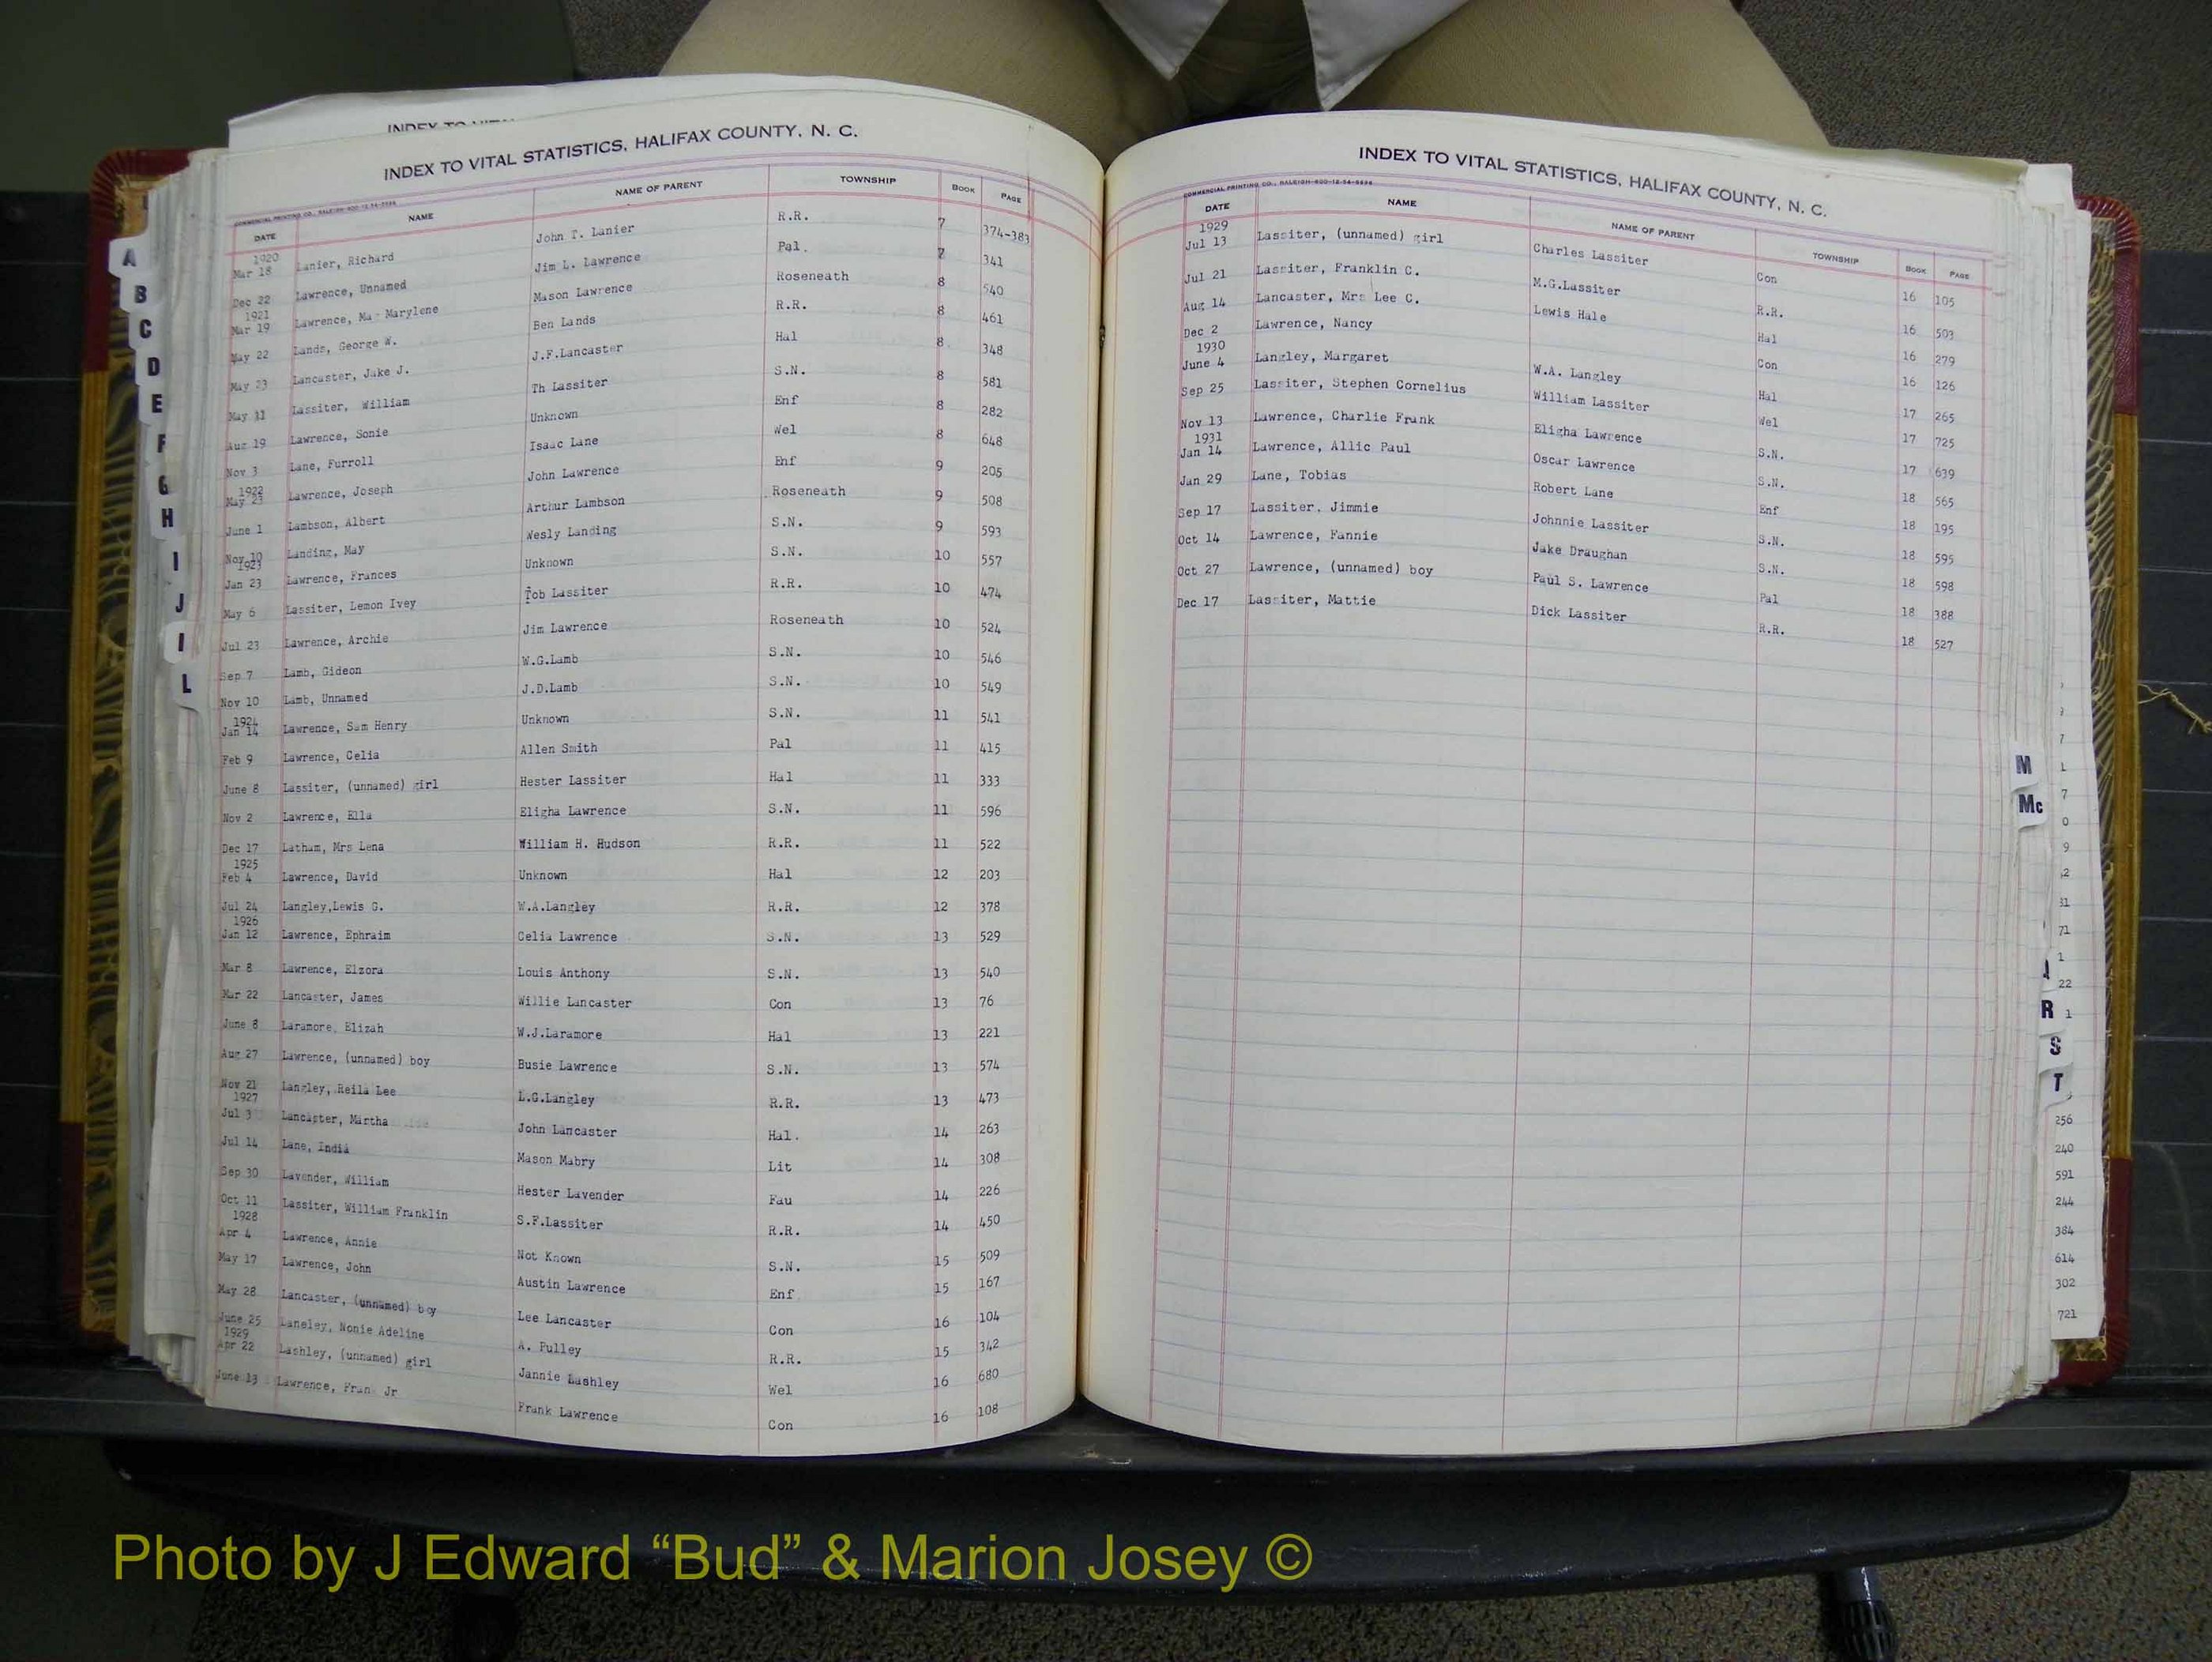 INDEX TO VITAL STATISTICS, HALIFAX COUNTY, N. C.
COMMERCIAL PRINTING CO., RALEIGH
DATE NAME NAME OF PARENT TOWNSHIP BOOK PAGE
1920
Mar 18 Lanier, Richard John T. Lanier R.R. 7 374-383
Dec 22 Lawrence, Unnamed Jim L. Lawrence Pal. 7 341
1921
Mar 19 Lawrence, Ma Marylene Mason Lawrence Roseneath 8 540
May 22 Lands, George W. Ben Lands R.R. 8 461
May 23 Lancaster, Jake J. J.F.Lancaster Hal 8 348
May 11 Lassiter, William Th Lassiter S.N. 8 581
Aug 19 Lawrence, Sonie Unknown Enf 8 282
Nov 3 Lane, Furroll Isaac Lane Wel 8 648
1922
May 23 Lawrence, Joseph John Lawrence Enf 9 205
June 1 Lambson, Albert Arthur Lambson Roseneath 9 508
Nov 10 Landing, May Wesly Landing S.N. 9 593
1923
Jan 23 Lawrence, Frances Unknown S.N. 10 557
May 6 Lassiter, Lemon Ivey Tob Lassiter R.R. 10 474
Jul 23 Lawrence, Archie Jim Lawrence Roseneath 10 524
Sep 7 Lamb, Gideon W.G.Lamb S.N. 10 546
Nov 10 Lamb, Unnamed J.D.Lamb S.N. 10 549
1924
Jan 14 Lawrence, Sam Henry Unknown S.N. 11 541
Feb 9 Lawrence, Celia Allen Smith Pal 11 415
June 8 Lassiter, (unnamed) girl Hester Lassiter Hal 11 333
Nov 2 Lawrence, Ella Eligha Lawrence S.N. 11 596
Dec 17 Latham, Mrs Lena William H. Hudson R.R. 11 522
1925
Feb 4 Lawrence, David Unknown Hal 12 203
Jul 24 Langley,Lewis G. W.A.Langley R.R. 12 378
1926
Jan 12 Lawrence, Ephraim Celia Lawrence S.N. 13 529
Mar 8 Lawrence, Elzora Louis Anthony S.N. 13 540
Mar 22 Lancaster, James Willie Lancaster Con 13 76
June 8 Laramore, Elizah W.J.Laramore Hal 13 221
Aug 27 Lawrence, (unnamed) boy Busie Lawrence S.N. 13 574
Nov 21 Langley, Reila Lee L.G.Langley R.R. 13 473
1927
Jul 3 Lancaster, Martha John Lancaster Hal. 14 263
Jul 14 Lane, India Mason Mabry Lit 14 308
Sep 30 Lavender, William Hester Lavender Fau 14 226
Oct 11 Lassiter, William Franklin S.F.Lassiter R.R. 14 450
1928
Apr 4 Lawrence, Annie Not Known S.N. 15 509
May 17 Lawrence, John Austin Lawrence Enf 15 167
May 28 Lancaster, (unnamed) boy Lee Lancaster Con 16 104
June 25 Langley, Nonie Adeline A. Pulley R.R. 15 342
1929
Apr 22 Lashley, (unnamed) girl Jannie Lashley Wel 16 680
June 13 Lawrence, Fran Jr Frank Lawrence Con 16 108
INDEX TO VITAL STATISTICS, HALIFAX COUNTY, N. C.
COMMERCIAL PRINTING CO., RALEIGH
DATE NAME NAME OF PARENT TOWNSHIP BOOK PAGE
1929
Jul 13 Lassiter, (unnamed) girl Charles Lassiter Con 16 105
Jul 21 Lassiter, Franklin C. M.G.Lassiter R.R. 16 503
Aug 14 Lancaster, Mrs Lee C. Lewis Hale Hal 16 279
Dec 2 Lawrence, Nancy Con 16 126
1930
June 4 Langley, Margaret W.A. Langley Hal 17 265
Sep 25 Lassiter, Stephen Cornelius William Lassiter Wel 17 725
Nov 13 Lawrence, Charlie Frank Eligha Lawrence S.N. 17 639
1931
Jan 14 Lawrence, Allic Paul Oscar Lawrence S.N. 18 565
Jan 29 Lane, Tobias Robert Lane Enf 18 195
Sep 17 Lassiter, Jimmie Johnnie Lassiter S.N. 18 595
Oct 14 Lawrence, Fannie Jake Draughan S.N. 18 598
Oct 27 Lawrence, (unnamed) boy Paul S. Lawrence Pal 18 388
Dec 17 Lassiter, Mattie Dick Lassiter R.R. 18 527
A
B
C
D
E
F
G
H
I
J
L
M
Mc
R
S
T
256
240
591
244
384
614
302
721
Photo by J Edward “Bud” & Marion Josey ©